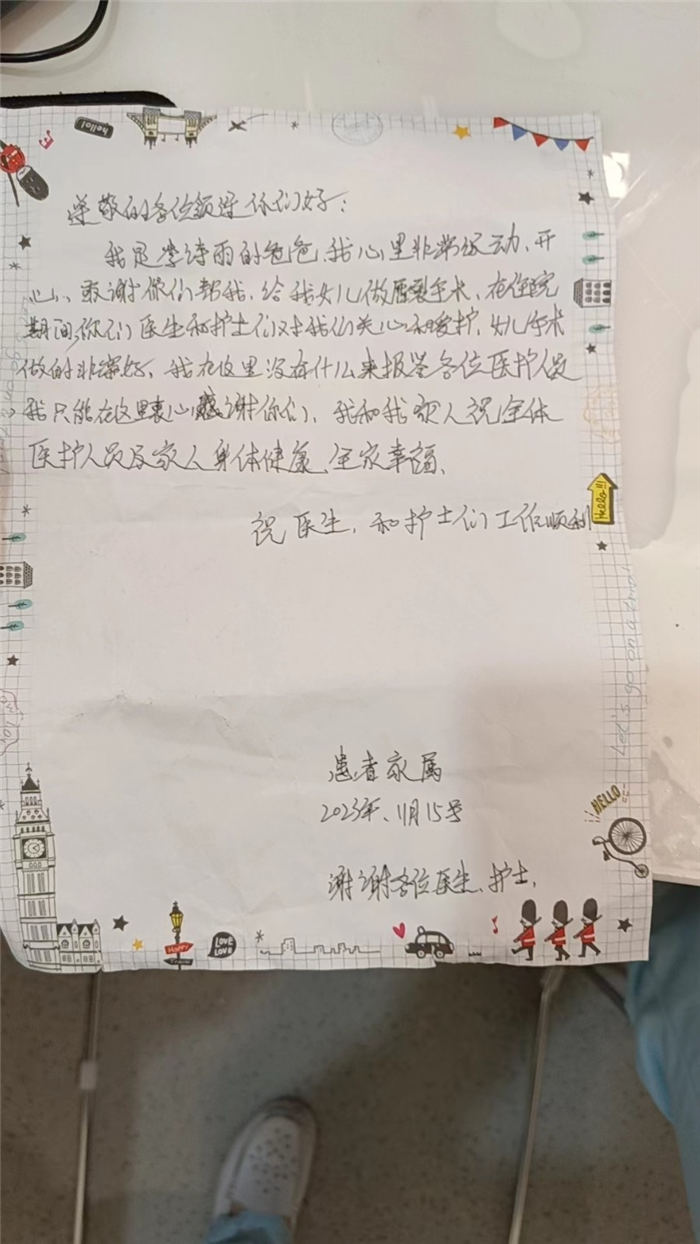 hello!
尊敬的各位领导你们好:
我是李诗雨的爸爸,我心里非常激动、开
心、感谢你们帮我、给我女儿做腭裂手术、在住院
期间你们医生和护士们对我们关心和爱护,女儿手术
做的非常好、我在这里没有什么来报答各位医护人员
我只能在这里衷心感谢你们、我和我家人祝全体
医护人员及家人身体健康、全家幸福、
祝医生,和护士们工作顺利
Hello!!!
Let's go on a time!
患者家属
2023年、11月15号
HELLO
谢谢各位医生、护士、
Happy
Travel
LOVE
LOVE